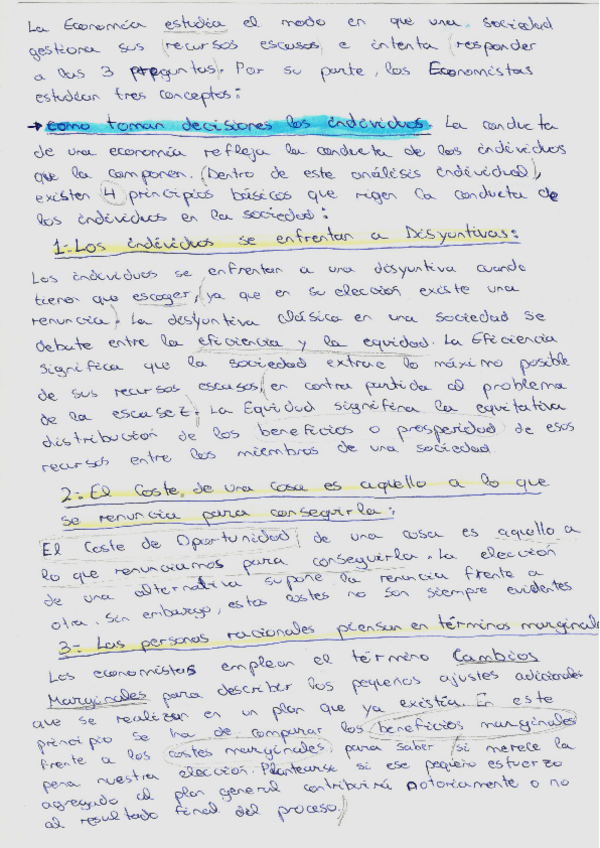 La Economía estudia el modo en que una sociedad
gestiona sus (recursos escasos) e intenta (responder
a las 3 preguntas). Por su parte, los Economistas
estudian tres conceptos:
→ como toman decisiones los individuos. La conducta
de una economía refleja la conducta de los individuos
que la componen. (Dentro de este análisis individual),
existen 4 principios básicos que rigen la conducta de
los individuos en la sociedad:
1-Los individuos se enfrentan a Disyuntivas:
Los individuos se enfrentan a una disyuntiva cuando
tienen que escoger, (ya que en su elección existe una
renuncia). La disyuntiva clásica en una sociedad se
debate entre la eficiencia y la equidad. La Eficiencia
significa que la sociedad extrae lo máximo posible
de sus recursos escasos, (en contra partida al problema
de la escasez). La Equidad significa la equitativa
distribución de los beneficios o prosperidad de esos
recursos entre los miembros de una sociedad.
2-El Coste de una cosa es aquello a lo que
se renuncia para conseguirla:
El Coste de Oportunidad, de una cosa es aquello a
lo que renunciamos para conseguirla. La elección
de una alternativa supone la renuncia frente a
otra. Sin embargo, estos costes no son siempre evidentes
3- Las personas racionales piensan en términos marginale
Los economistas emplean el término Cambios
Marginales para describir los pequeños ajustes adicionales
que se realizan en un plan que ya existía. En este
principio se ha de comparar los beneficios marginales
frente a los costes marginales, para saber (si merece la
pena nuestra elección. Plantearse si ese pequeño esfuerzo
agregado al plan general contribuirá notoriamente o no
al resultado final del proceso.)